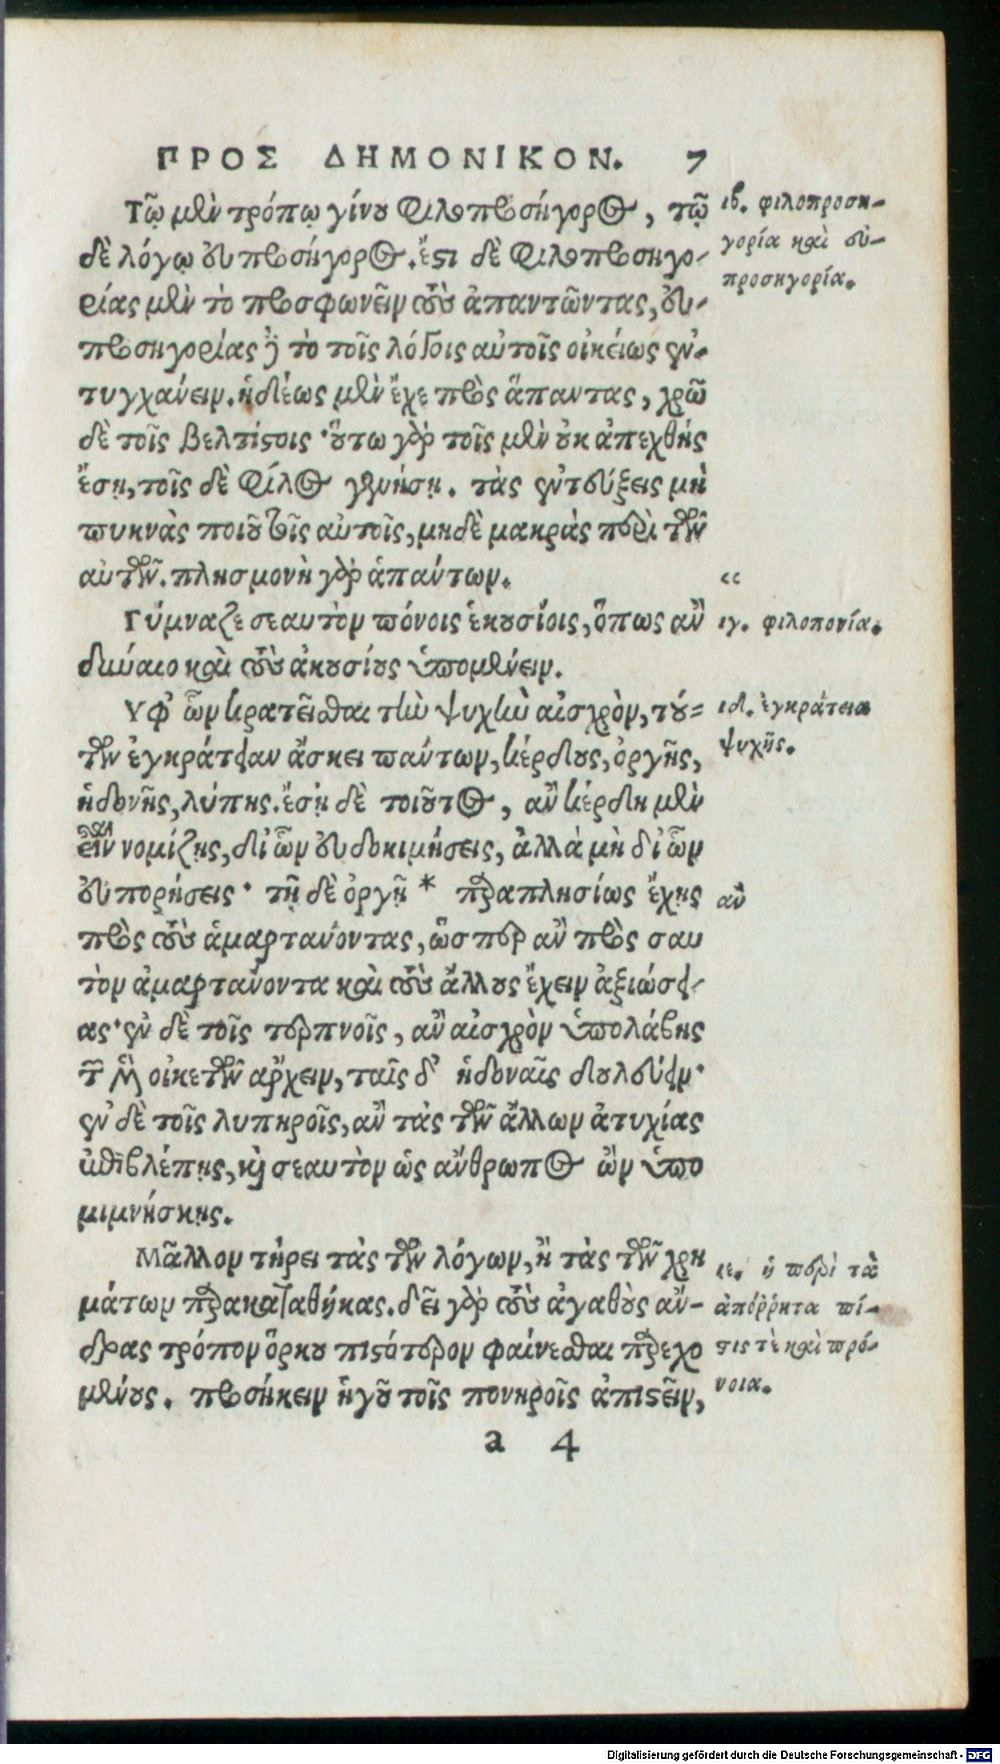 ΠΡΟΣ ΔΗΜΟΝΙΚΟΝ. 7
Τῷ μὲν τρόπῳ γίνου φιλοπροσήγορος, τῷ
δὲ λόγῳ εὐπροσήγορος. ἔστι δὲ φιλοπροσηγο-
ρίας μὲν τὸ προσφωνεῖν τοὺς ἀπαντῶντας, εὐ-
προσηγορίας δὲ τὸ τοῖς λόγοις αὐτοῖς οἰκείως ἐν-
τυγχάνειν. ἡδέως μὲν ἔχε πρὸς ἅπαντας, χρῶ
δὲ τοῖς βελτίστοις· οὕτω γὰρ τοῖς μὲν οὐκ ἀπεχθὴς
ἔσῃ, τοῖς δὲ φίλος γενήσῃ. τὰς ἐντεύξεις μὴ
πυκνὰς ποιοῦ τοῖς αὐτοῖς, μηδὲ μακρὰς περὶ τῶν
αὐτῶν. πλησμονὴ γὰρ ἁπάντων.
Γύμναζε σεαυτὸν πόνοις ἑκουσίοις, ὅπως ἂν
δύναιο καὶ τοὺς ἀκουσίους ὑπομένειν.
Ὑφ' ὧν κρατεῖσθαι τὴν ψυχὴν αἰσχρὸν, τού=
των ἐγκράτειαν ἄσκει πάντων, κέρδους, ὀργῆς,
ἡδονῆς, λύπης. ἔσῃ δὲ τοιοῦτος, ἂν κέρδη μὲν
εἶναι νομίζῃς, δι' ὧν εὐδοκιμήσεις, ἀλλὰ μὴ δι' ὧν
εὐπορήσεις· τῇ δὲ ὀργῇ * παραπλησίως ἔχῃς
πρὸς τοὺς ἁμαρτάνοντας, ὥσπερ ἂν πρὸς σαυ
τὸν ἁμαρτάνοντα καὶ τοὺς ἄλλους ἔχειν ἀξιώσει-
ας· ἐν δὲ τοῖς τερπνοῖς, ἂν αἰσχρὸν ὑπολάβῃς
τῶν μὲν οἰκετῶν ἄρχειν, ταῖς δ' ἡδοναῖς δουλεύειν·
ἐν δὲ τοῖς λυπηροῖς, ἂν τὰς τῶν ἄλλων ἀτυχίας
ἐπιβλέπῃς, καὶ σεαυτὸν ὡς ἄνθρωπος ὢν ὑπο
μιμνήσκῃς.
Μᾶλλον τήρει τὰς τῶν λόγων, ἢ τὰς τῶν χρη
μάτων παρακαταθήκας. δεῖ γὰρ τοὺς ἀγαθοὺς ἄν-
δρας τρόπον ὅρκου πιστότερον φαίνεσθαι παρεχο
μένους. προσήκειν ἡγοῦ τοῖς πονηροῖς ἀπιστεῖν,
a 4
ιβ. φιλοπροση-
γορία καὶ εὐ-
προσηγορία.
‹‹
ιγ. φιλοπονία.
ιδ. ἐγκράτεια
ψυχῆς.
ἂν
ιε. ἡ περὶ τὰ
ἀπόῤῥητα πί-
στις τὲ καὶ πρό-
νοια.
Digitalisierung gefördert durch die Deutsche Forschungsgemeinschaft - DFG